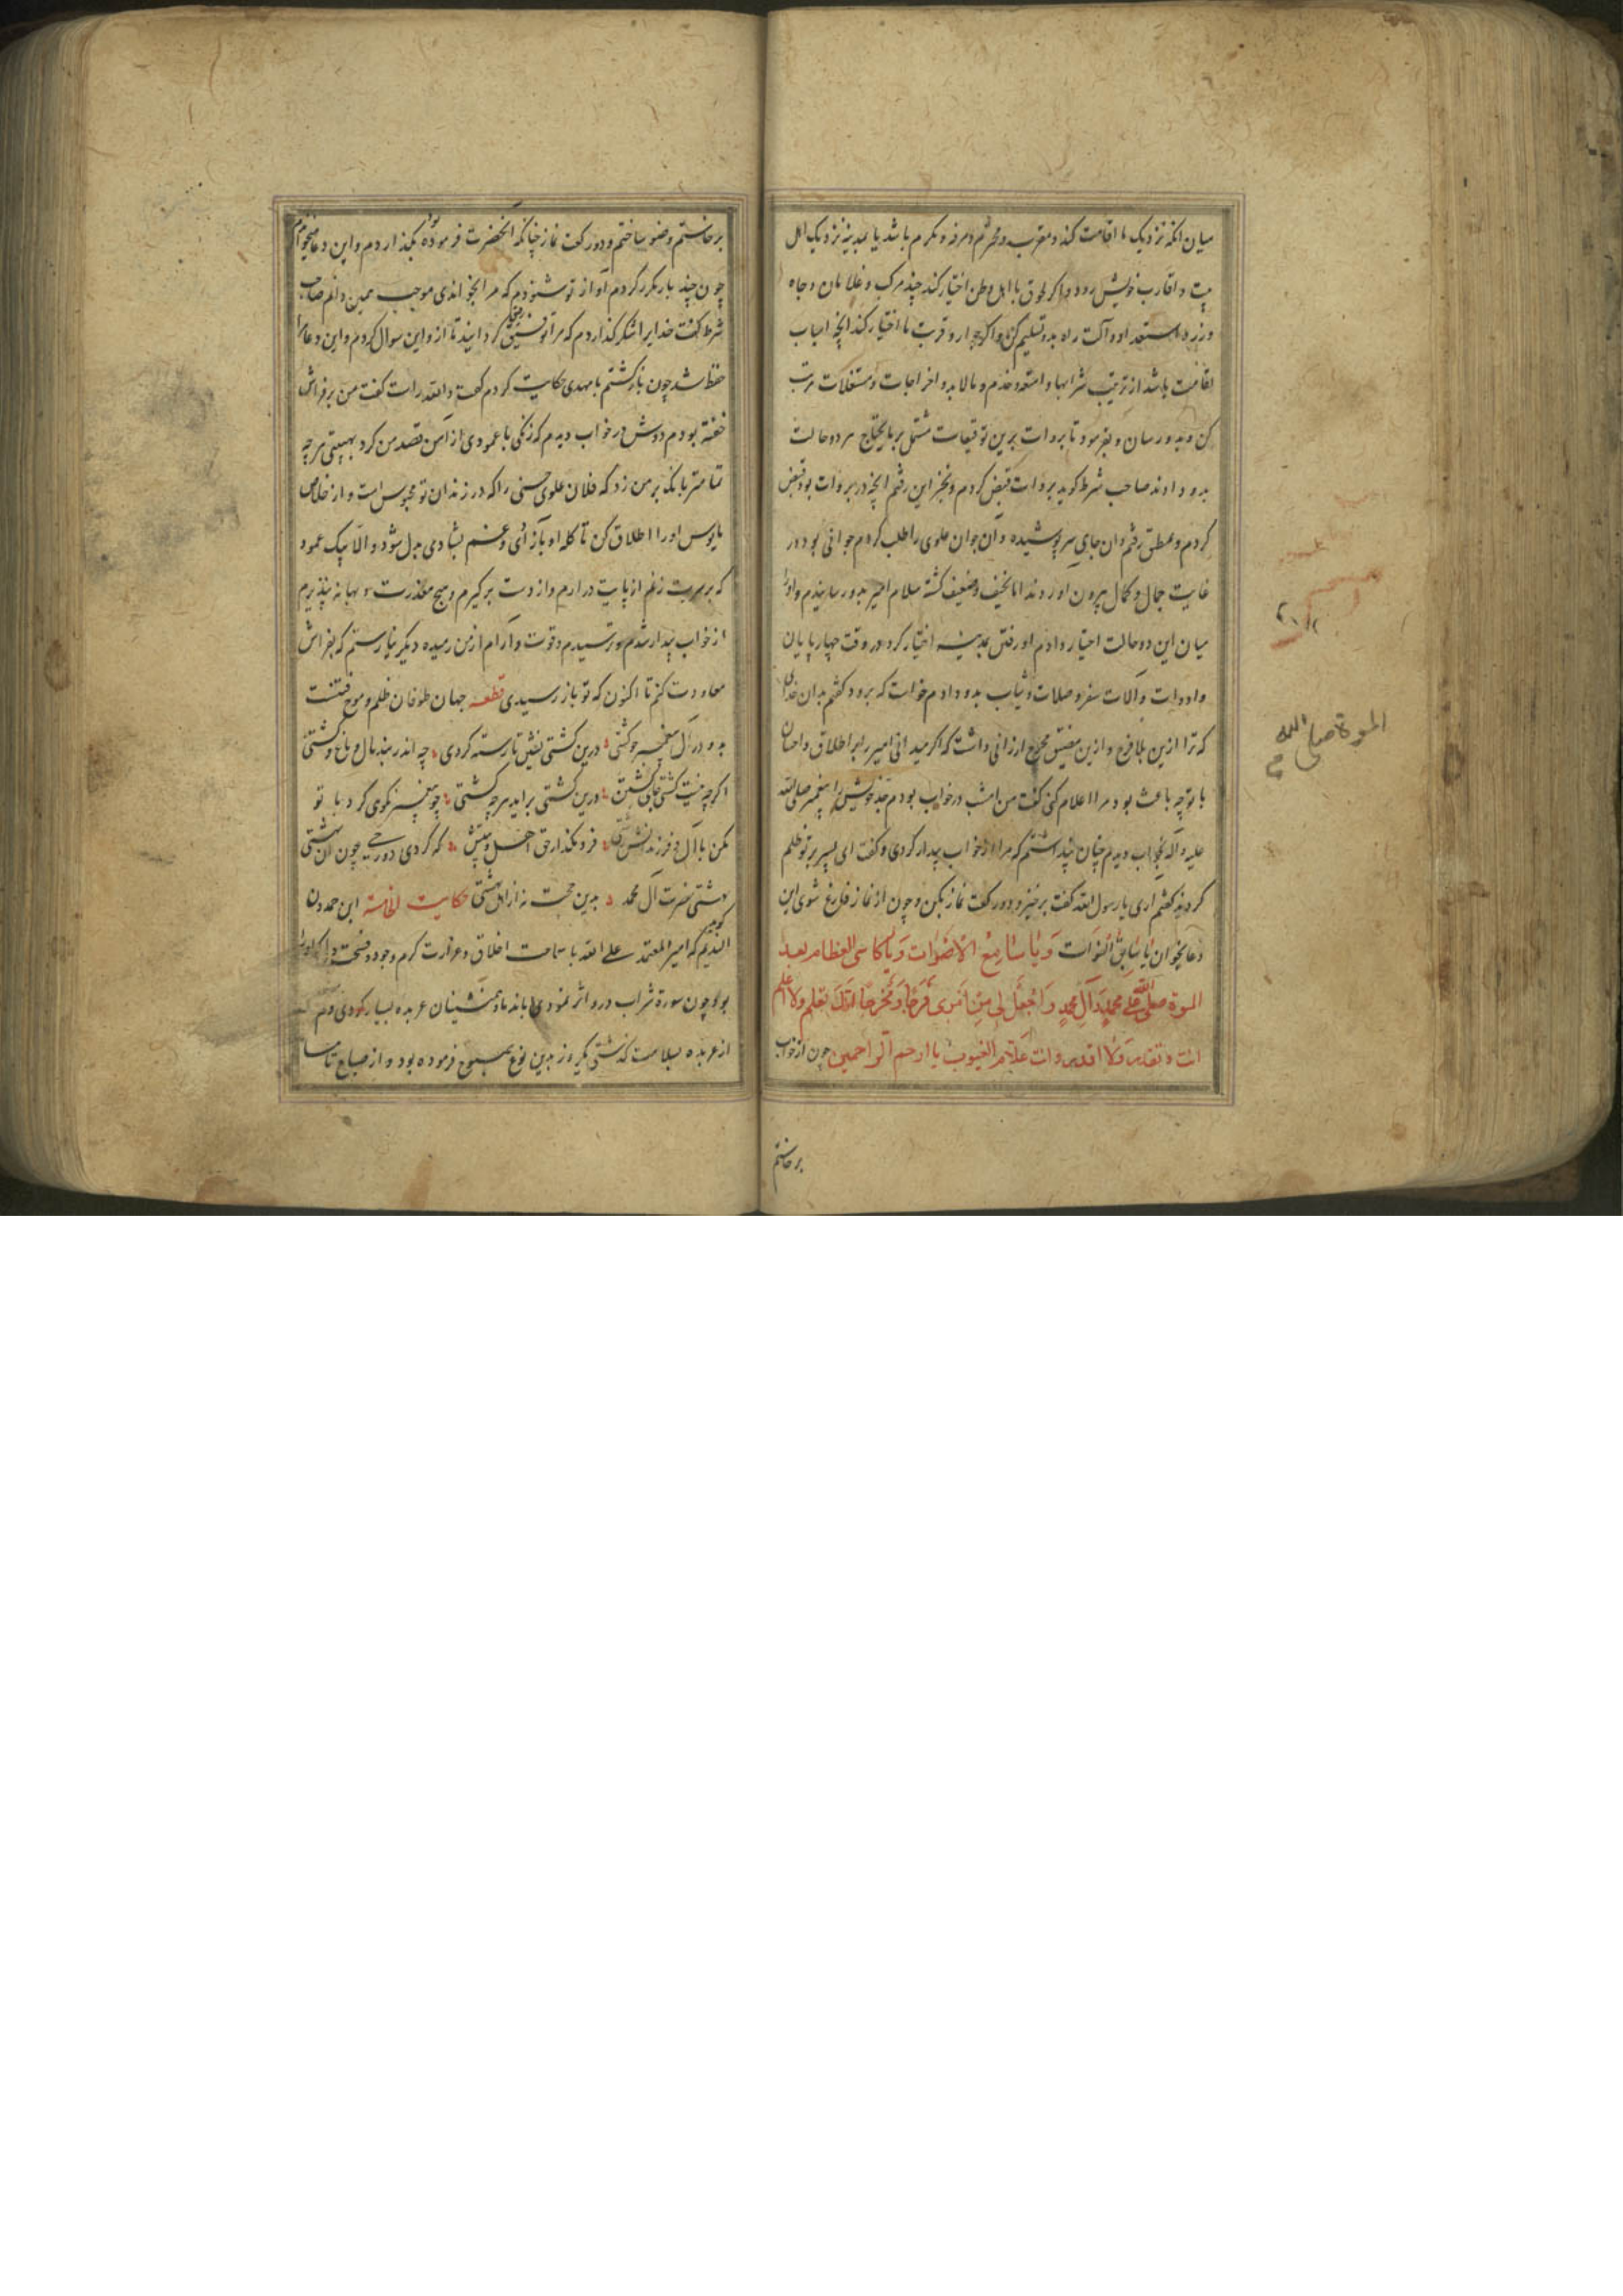 میان انکه نزدیک ما اقامت کند و مقرب و محترم و مرفه و مکرم باشد یا بمدینه نزدیک اهل
بیت و اقارب خویش رود و اگر لحوق با اهل وطن اختیار کند چند مرکب و غلامان و جاه
و زر و استعداد و آلت راه بدو تسلیم کن و اگر جوار و قربت ما اختیار کند انچه اسباب
اقامت باشد از ترتیب شرابها و امتعه و خدم و مالابد و اخراجات و مستغلات مرتب
کن و بدو رسان و بفرمود تا بروات برین توقیعات مشتمل بر مایحتاج هر دو حالت
بدو دادند صاحب شرط کوید بروات قبض کردم و بتنجز این رفتم انچه در بروات بود قبض
کردم و بمطبق رفتم و ان جای سرپوشیده و ان جوان علوی را طلب کردم جوانی بود در
غایت جمال و کمال بیرون اوردند اما نحیف و ضعیف کشته سلام امیر بدو رسانیدم و او را
میان این دو حالت اختیار دادم او رفتن بمدینه اختیار کرد در وقت چهارپایان
و ادوات و آلات سفر و صلات و ثیاب بدو دادم خواست که برود کفتم بدان خدای
که ترا ازین بلا فرج و ازین مضیق مخرج ارزانی داشت که اگر میدانی امیر را بر اطلاق و احسان
با تو چه باعث بود مرا اعلام کنی کفت من امشب در خواب بودم جد خویش را پیغمبر صلی الله
علیه و اله بخواب دیدم چنان پنداشتم که مرا از خواب بیدار کردی و کفت ای پسر بر تو ظلم
کردند کفتم اری یا رسول الله کفت برخیز و دو رکعت نماز بکن و چون از نماز فارغ شوی این
دعا بخوان یا سابق الفوات و یا سامع الاصوات و یا کاسی العظام بعد
الموت صلی الله علی محمد و آل محمد و اجعل لی من امری فرجا و مخرجا انک تعلم ولا اعلم
انت و تقدر ولا اقدر و انت علام الغیوب یا ارحم الراحمین چون از خواب
برخاستم
الموة صلی الله
برخاستم و وضو ساختم و دو رکعت نماز چنانکه آنحضرت فرموده بود بگذاردم و این دعا میخواندم
چون چند بار مکرر کردم آواز تو شنودم که مرا بخواندی موجب همین دانم صاحب
شرط کفت خدایرا شکر گذاردم که مرا توفیق رفیق کردانید تا از و این سوال کردم و این دعا مرا
حفظ شد چون بازکشتم با مهدی حکایت کردم کفت والله راست کفت من بر فراش
خفته بودم دوش در خواب دیدم که زنکی با عمودی از آهن قصد من کرد بهیبتی هرچه
تمامتر بانک بر من زد که فلان علوی حسنی را که در زندان تو محبوس است و از خلاص
مایوس او را اطلاق کن تا کله او بآزادی و غم بشادی مبدل شود و الا بیک عمود
که بر سرت زنم از پایت درارم و از دست برکیرم و هیچ معذرت و بهانه نپذیرم
از خواب بیدار شدم و ترسیدم و قوت و آرام از من رمیده دیکر نیارستم که بفراش
معاودت کنم تا اکنون که تو باز رسیدی قطعه جهان طوفان ظلم و موج فتنست
بدو در آل پیغمبر چو کشتی درین کشتی نشین تا رسته کردی چه اندر بند مال و باغ و کشتی
اکرچه نیست کشتی جای کشتن درین کشتی براید هرچه کشتی چو پیغمبر نکوی کرد با تو
مکن با آل و فرزندانش زشتی فرو مکذار که کردی دوزخی چون ان بهشتی
بهشتی حضرت آل محمد بدین حجت نه از اهل بهشتی حکایت الخامسة ابن حمدون
الندیم کوید که امیر المعتمد علی الله با سماحت اخلاق و غزارت کرم و جود و فسحت
بود چون سورة شراب درو اثر نمودی با ندما و همنشینان عربده بسیار کردی و کم
از عربده بسلامت کذشتی یکروز بدین نوع صبوح فرموده بود و از صباح تا مسا